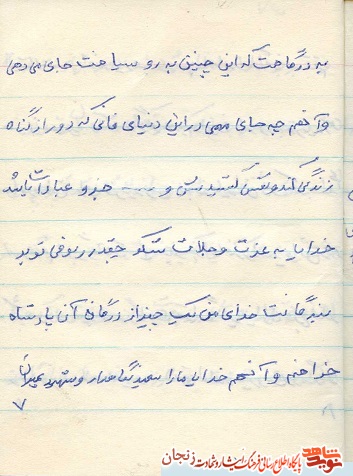 به درگاهت که این چنین به رو سیاهت جای می دهی
و آنهم چه جای مهمی در این دنیای فانی که دور از گناه
زندگی کند و نفس کشیدنش و جزو عبادات باشد
خدایا به عزت و جلالت شکر چقدر رئوفی تو به
بندگانت خدای من یک چیز از درگاه آن پادشاه
خواهم و آنهم خدایا مارا سعید نگاهدار و شهید بمیران
۷
نوید شاهد
پایگاه اطلاع رسانی فرهنگ ایثار و شهادت زنجان